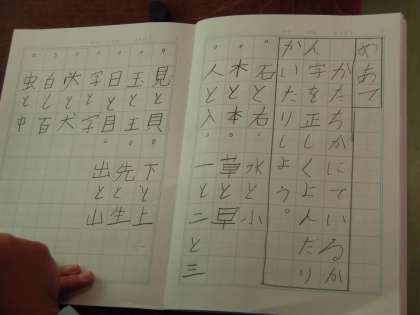 めあて
かたちがにているか
ん字を正しくよんだり
かいたりしよう。
石と右 水と小
木と本 草と早
人と入 一と二と三
見と貝 下と上
玉と王 先と生
日と目 出と山
字と学
大と犬
白と百
虫と中